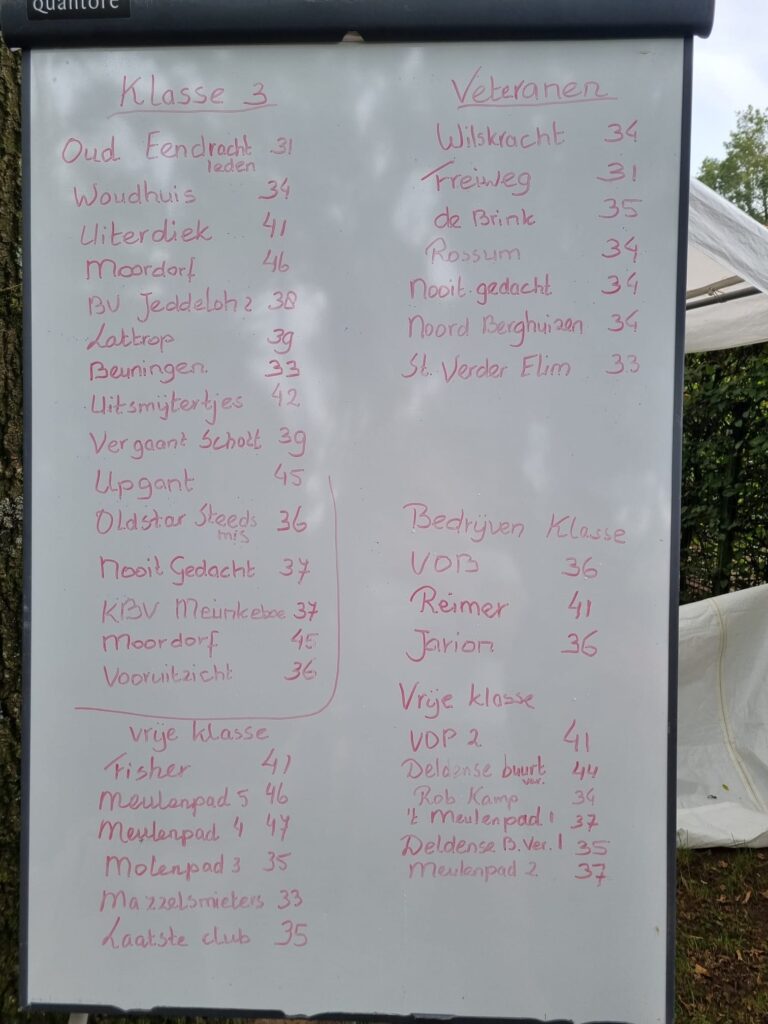 Quantore
Klasse 3
Oud Eendracht 31
leden
Woudhuis 34
Uiterdiek 41
Moordorf 46
BV Jeddeloh 2 38
Lattrop 39
Beuningen 33
Uitsmijtertjes 42
Vergaant Scholt 39
Upgant 45
Oldstar Steeds 36
mis
Nooit Gedacht 37
KBV Meunkeboe 37
Moordorf 45
Vooruitzicht 36
vrije klasse
Trisher 41
Meulenpad 5 46
Meulenpad 4 47
Molenpad 3 35
Mazzelsmieters 33
Laatste club 35
Veteranen
Wilskracht 34
Freiweg 31
de Brink 35
Rossum 34
Nooit gedacht 34
Noord Berghuizen 34
St. Verder Elim 33
Bedrijven Klasse
VOB 36
Reimer 41
Jarion 36
Vrije klasse
VOP 2 41
Deldense buurt 44
ver.
Rob Kamp 34
't Meulenpad 1 37
Deldense B.Ver. 1 35
Meulenpad 2 37